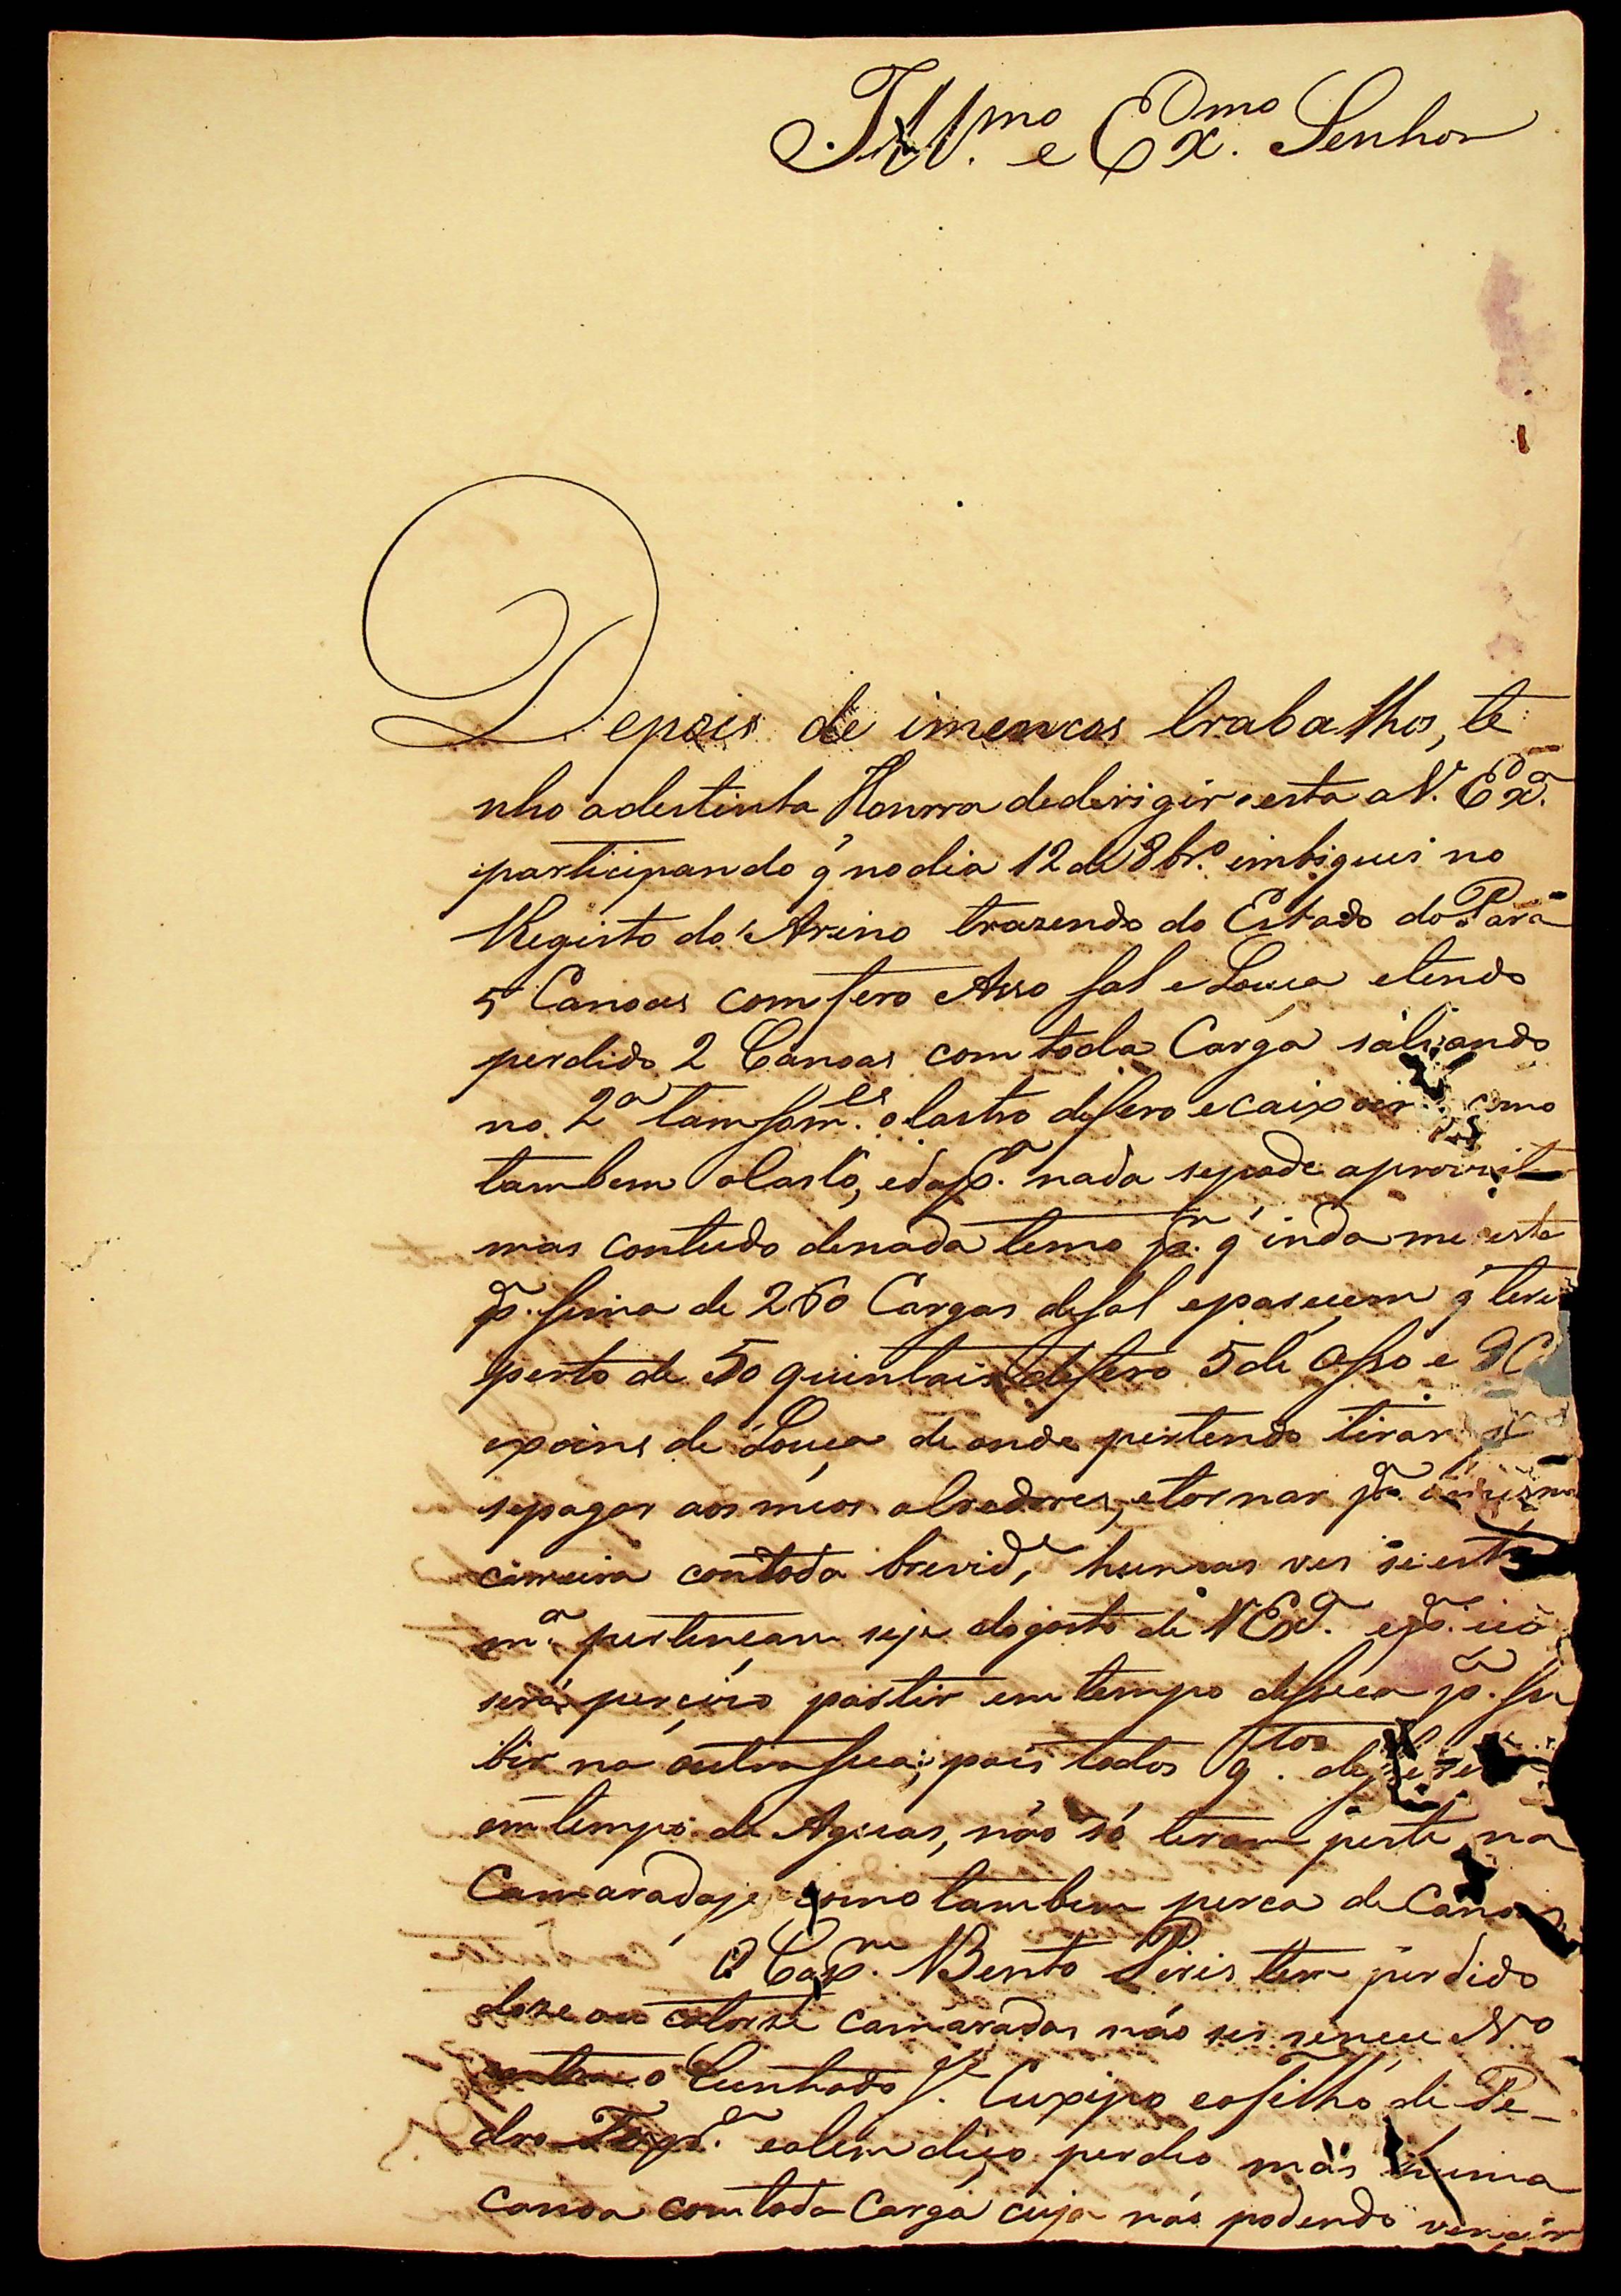 Ill.mo e Ex.mo Senhor
Depois de imencos trabalhos, te
nho adestinta Honrra dederigir esta a V. Ex.a
participando q̃ nodia 12 de 8br.o imbiquei no
Registo do Arino trazendo do Estado do Pará
5 Canoas com fero Asso sal e Louça etendo
perdido 2 Canoas com toda Carga salvando
no 2a tam som.es o lastro defero ecaixoeis como
tambem olasto, eda p.a nada sepode aprovit
mas contudo denada temo p.r q̃ inda me reste
p.a sima de 260 Cargas desal eparecem q̃ terei
perto de 50 quintais defero 5 de Asso e
de Louça de onde pertendo tirar
sepagar aos meos alredores, etornar p.a amesma
carreira comtoda brevid.e huma ves se esta
m.a pertençam seje dogosto de V Ex.a
será perçizo partir em tempo deseca p.a su
bir na outra seca; pois todos q.tos
em tempo de Agoas, não só teram peste na
Camaradaje como tambem perca de Canoas
O Cap.m Bento Piris tem perdido
doze ou catorze camaradas não
o Cunhado J.e Cuxipo eofilho de Pe-
dro ealem diço perdeo mais huma
canoa comtoda Carga cuja não podendo vençer